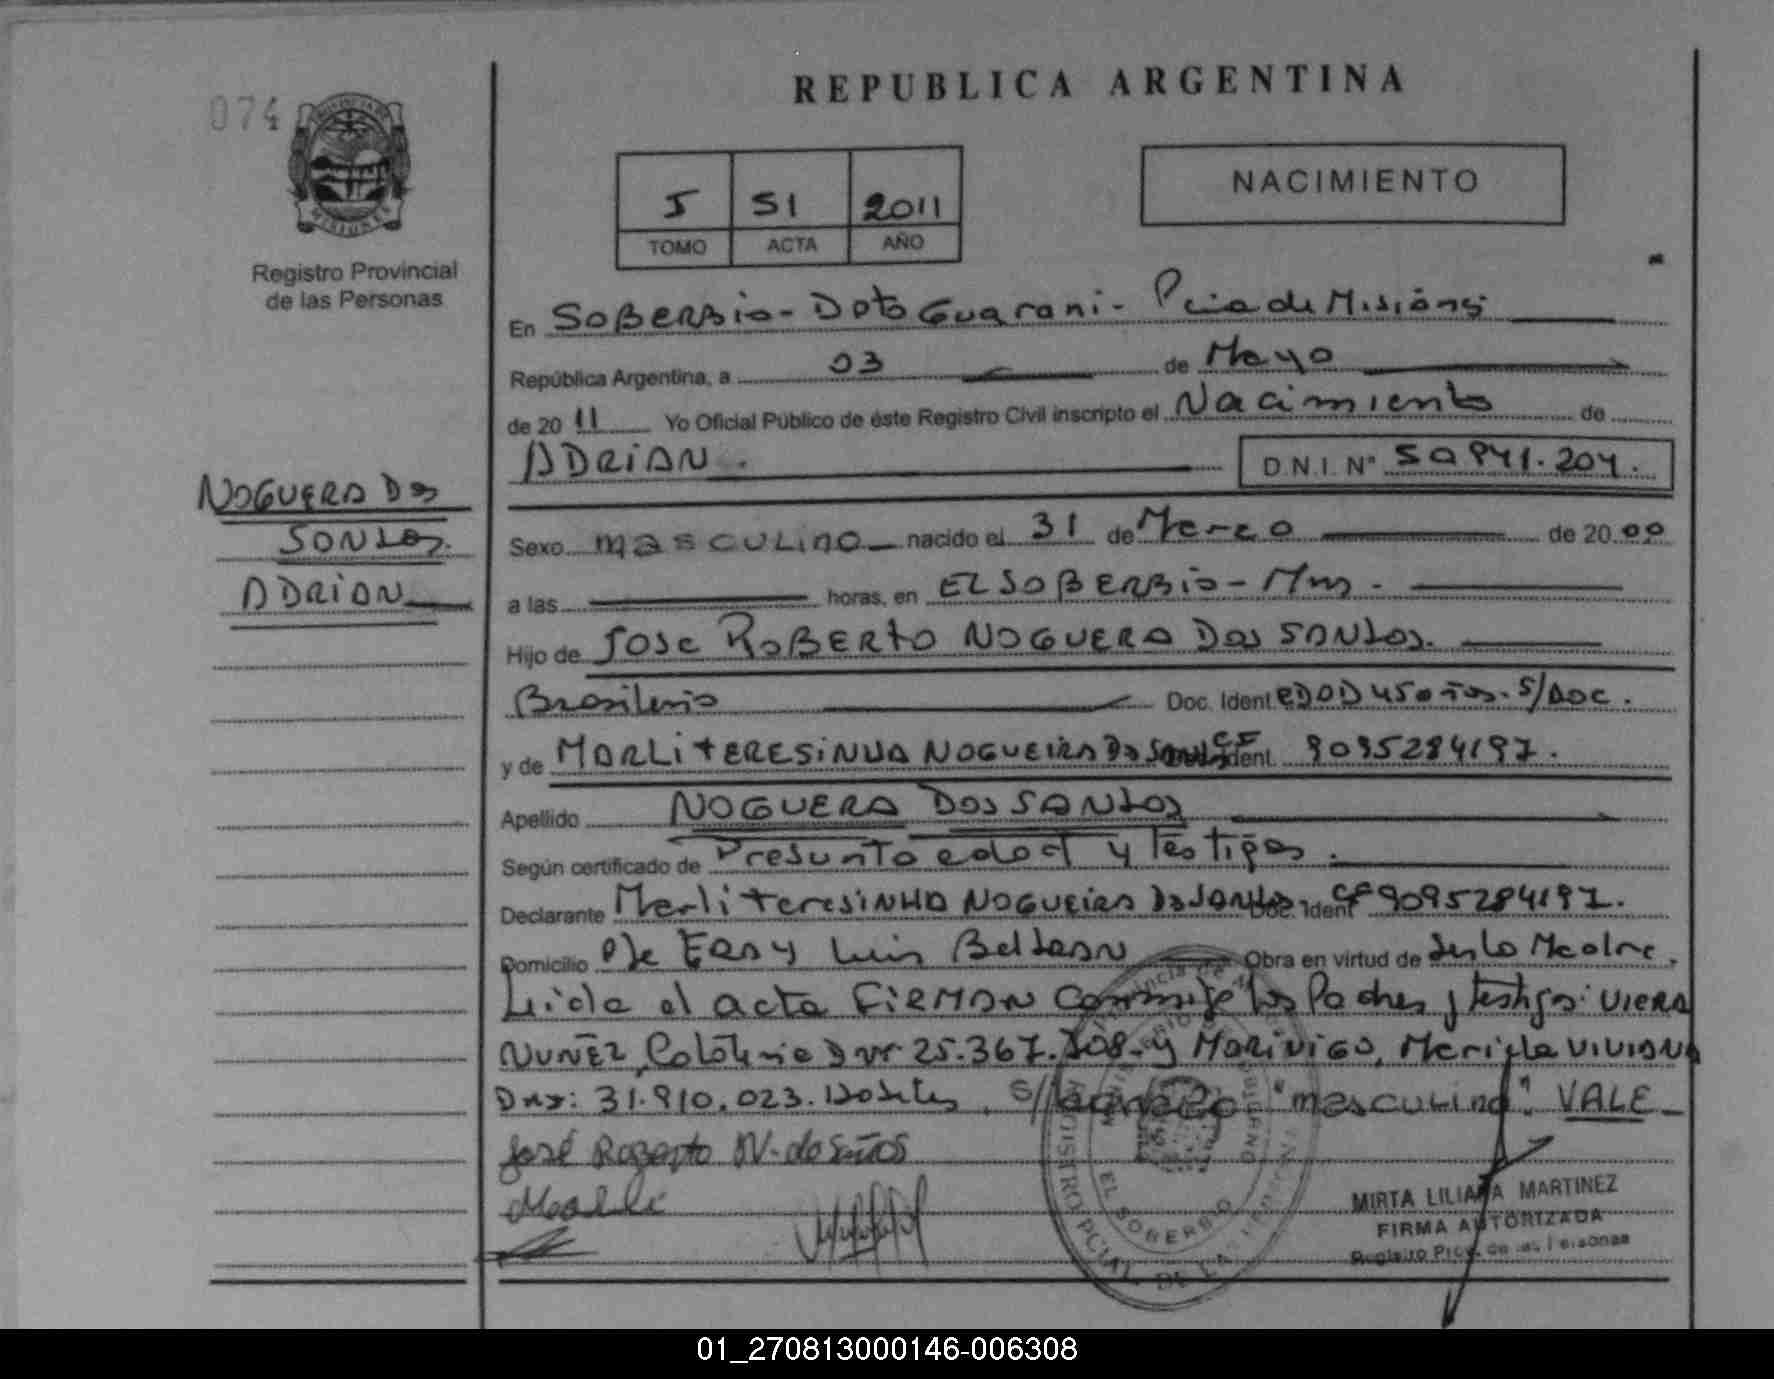 REPUBLICA ARGENTINA
074
PROVINCIA DE MISIONES
Registro Provincial
de las Personas
5 51 2011
TOMO ACTA AÑO
NACIMIENTO
En SOBERBIO - Dpto Guarani - Pcia de Misiones
República Argentina, a 03 de Mayo
de 2011 Yo Oficial Público de éste Registro Civil inscripto el Nacimiento de
ADRIAN. D.N.I. Nº 50.941.204.
NOGUERA DOS
SANTOS.
ADRIAN
Sexo masculino nacido el 31 de Marzo de 2000
a las horas, en EL SOBERBIO - Mnes.
Hijo de JOSE ROBERTO NOGUERA DOS SANTOS.
Brasilero Doc. Ident EDAD 45 años. S/DOC.
y de MARLI TERESINHA NOGUEIRA DOS SANTOS CF ident. 9095284197.
Apellido NOGUERA DOS SANTOS
Según certificado de Presunta edad y Testigos.
Declarante Marli Teresinha NOGUEIRA DOS SANTOS Doc. Ident CF 9095284197.
Domicilio Pje Fray Luis Beltran Obra en virtud de ser la Madre.
Leida el acta FIRMAN conmigo los Padres y testigos: VIERA
NUÑEZ, Dnr 25.367.308 - y MARINIGO, Mariela VIVIANA
Dnr: 31.910.023. S/ "masculino". VALE
José Roberto N. dos Santos
Marli
REGISTRO PCIAL. DE LAS PERSONAS
EL SOBERBIO
MIRTA LILIANA MARTINEZ
FIRMA AUTORIZADA
Registro Prov. de las Personas
01_270813000146-006308